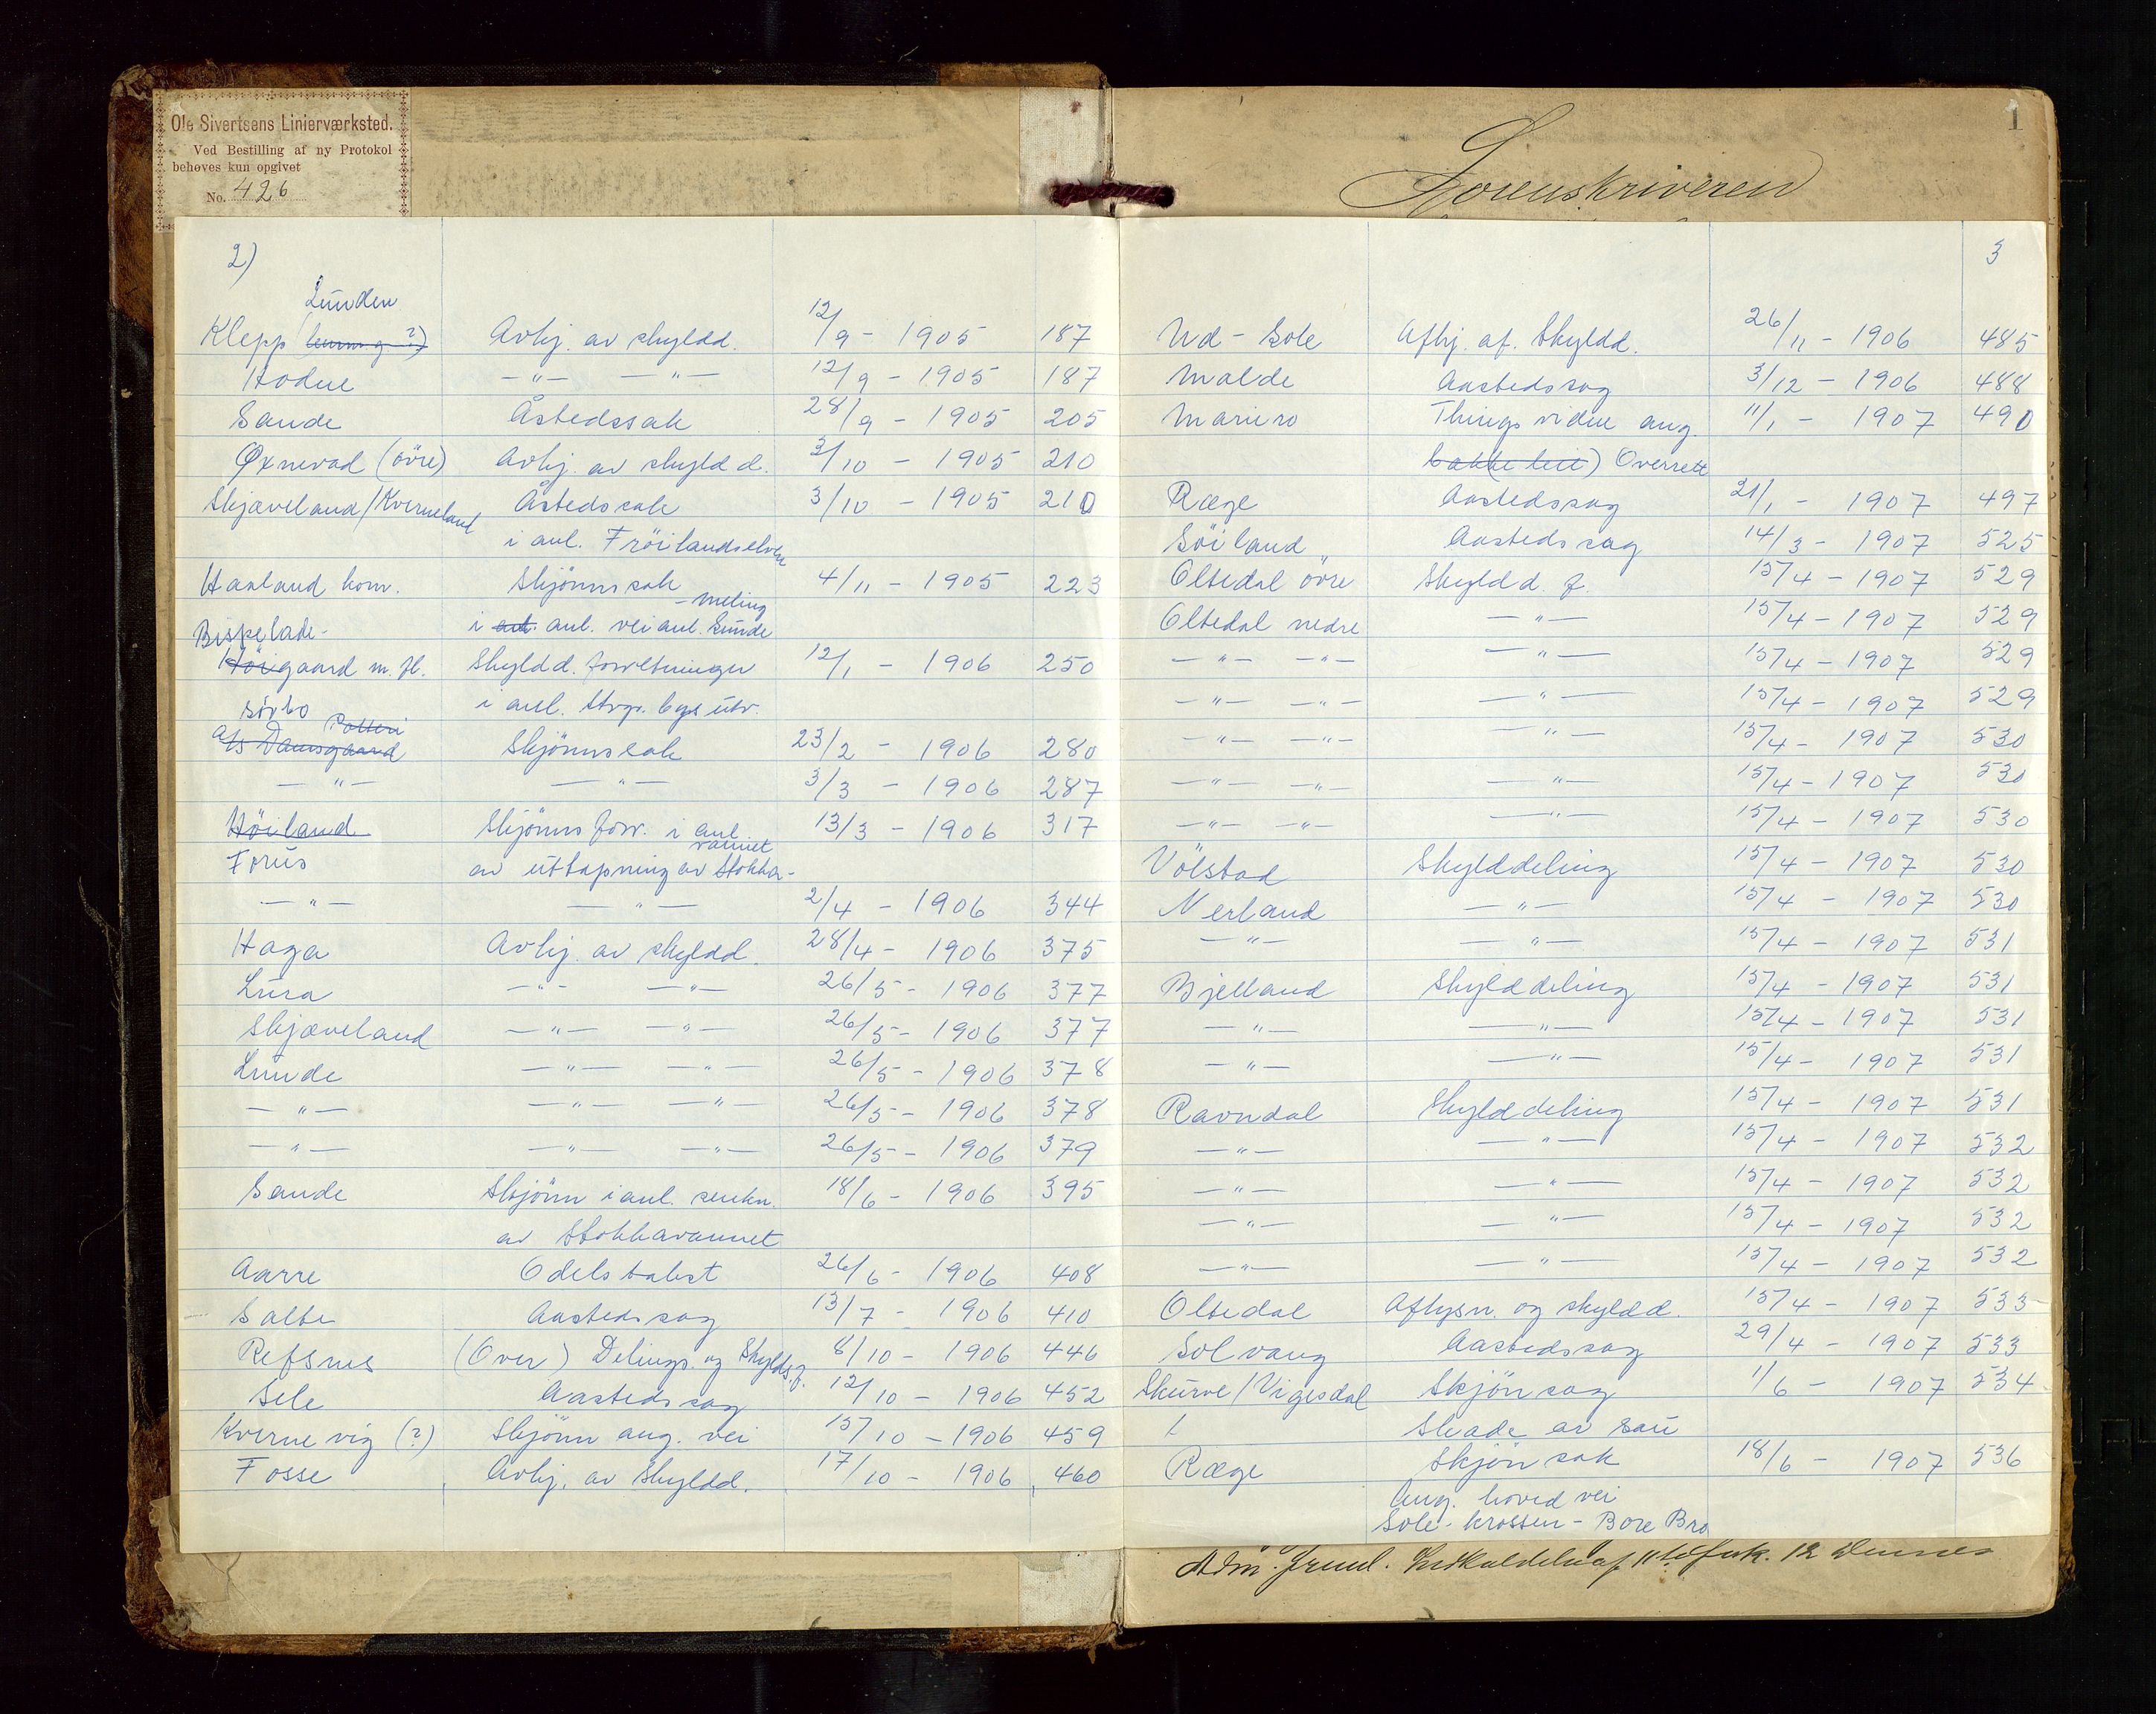 Ole Sivertsens Linierværksted.
Ved Bestilling af ny Protokol
behøves kun opgivet
No. 426
1
Sorenskriveren
2)
Lunden
Klepp Avhj. av skyldd. 12/9 - 1905 187
Hodne -"- -"- 12/9 - 1905 187
Sande Åstedssak 28/9 - 1905 205
Øxnevad (övre) Avhj. av skyldd. 3/10 - 1905 210
Skjæveland/Kverneland Åstedssak 3/10 - 1905 210
i anl. Fröilandselven
Haaland kom. Skjönnssak 4/11 - 1905 223
i anl. veianl. Sunde-meling
Bispelade-
Höigaard m. fl. Skyldd. forretninger 12/1 - 1906 250
i anl. Stvgr. bys utv.
Sörbo
A/S Damsgaard Potteri Skjönnssak 23/2 - 1906 280
-"- -"- 3/3 - 1906 287
Höiland Skjönns forr. i anl. 13/3 - 1906 317
Forus av uttapning av Stokka-vannet
-"- -"- 2/4 - 1906 344
Haga Avhj. av skyldd. 28/4 - 1906 375
Lura -"- -"- 26/5 - 1906 377
Skjæveland -"- -"- 26/5 - 1906 377
Lunde -"- -"- 26/5 - 1906 378
-"- -"- -"- 26/5 - 1906 378
-"- -"- -"- 26/5 - 1906 379
Sande Skjönn i anl. senkn. 18/6 - 1906 395
av Stokkavannet
Aarre Odelstakst 26/6 - 1906 408
Salte Aastedssag 13/7 - 1906 410
Refsnes (Over) Delings. og Skylds.f. 8/10 - 1906 446
Sele Aastedssag 12/10 - 1906 452
Kvernevig (?) Skjönn ang. vei 15/10 - 1906 459
Fosse Avhj. av Skyldd. 17/10 - 1906 460
3
Ud-Sole Afhj. af. Skyldd. 26/11 - 1906 485
Malde Aastedssag 3/12 - 1906 488
Mariero Things vidne ang. 11/1 - 1907 490
Overrett
Ræge Aastedssag 21/1 - 1907 497
Söiland Aastedssag 14/3 - 1907 525
Oltedal övre Skyldd. f. 15/4 - 1907 529
Oltedal nedre -"- 15/4 - 1907 529
-"- -"- -"- 15/4 - 1907 529
-"- -"- -"- 15/4 - 1907 529
-"- -"- -"- 15/4 - 1907 530
-"- -"- -"- 15/4 - 1907 530
-"- -"- -"- 15/4 - 1907 530
Völstad Skylddeling 15/4 - 1907 530
Nerland -"- 15/4 - 1907 530
-"- -"- 15/4 - 1907 531
Bjelland Skylddeling 15/4 - 1907 531
-"- -"- 15/4 - 1907 531
-"- -"- 15/4 - 1907 531
Ravndal Skylddeling 15/4 - 1907 531
-"- -"- 15/4 - 1907 532
-"- -"- 15/4 - 1907 532
-"- -"- 15/4 - 1907 532
-"- -"- 15/4 - 1907 532
Oltedal Aflysn. og skyldd. 15/4 - 1907 533
Solvang Aastedssag 29/4 - 1907 533
Skurve/Vigesdal Skjönsag 1/6 - 1907 534
Skade av sau
Ræge Skjönsak 18/6 - 1907 536
Ang. hovedvei
Sole-krossen - Bore Bro